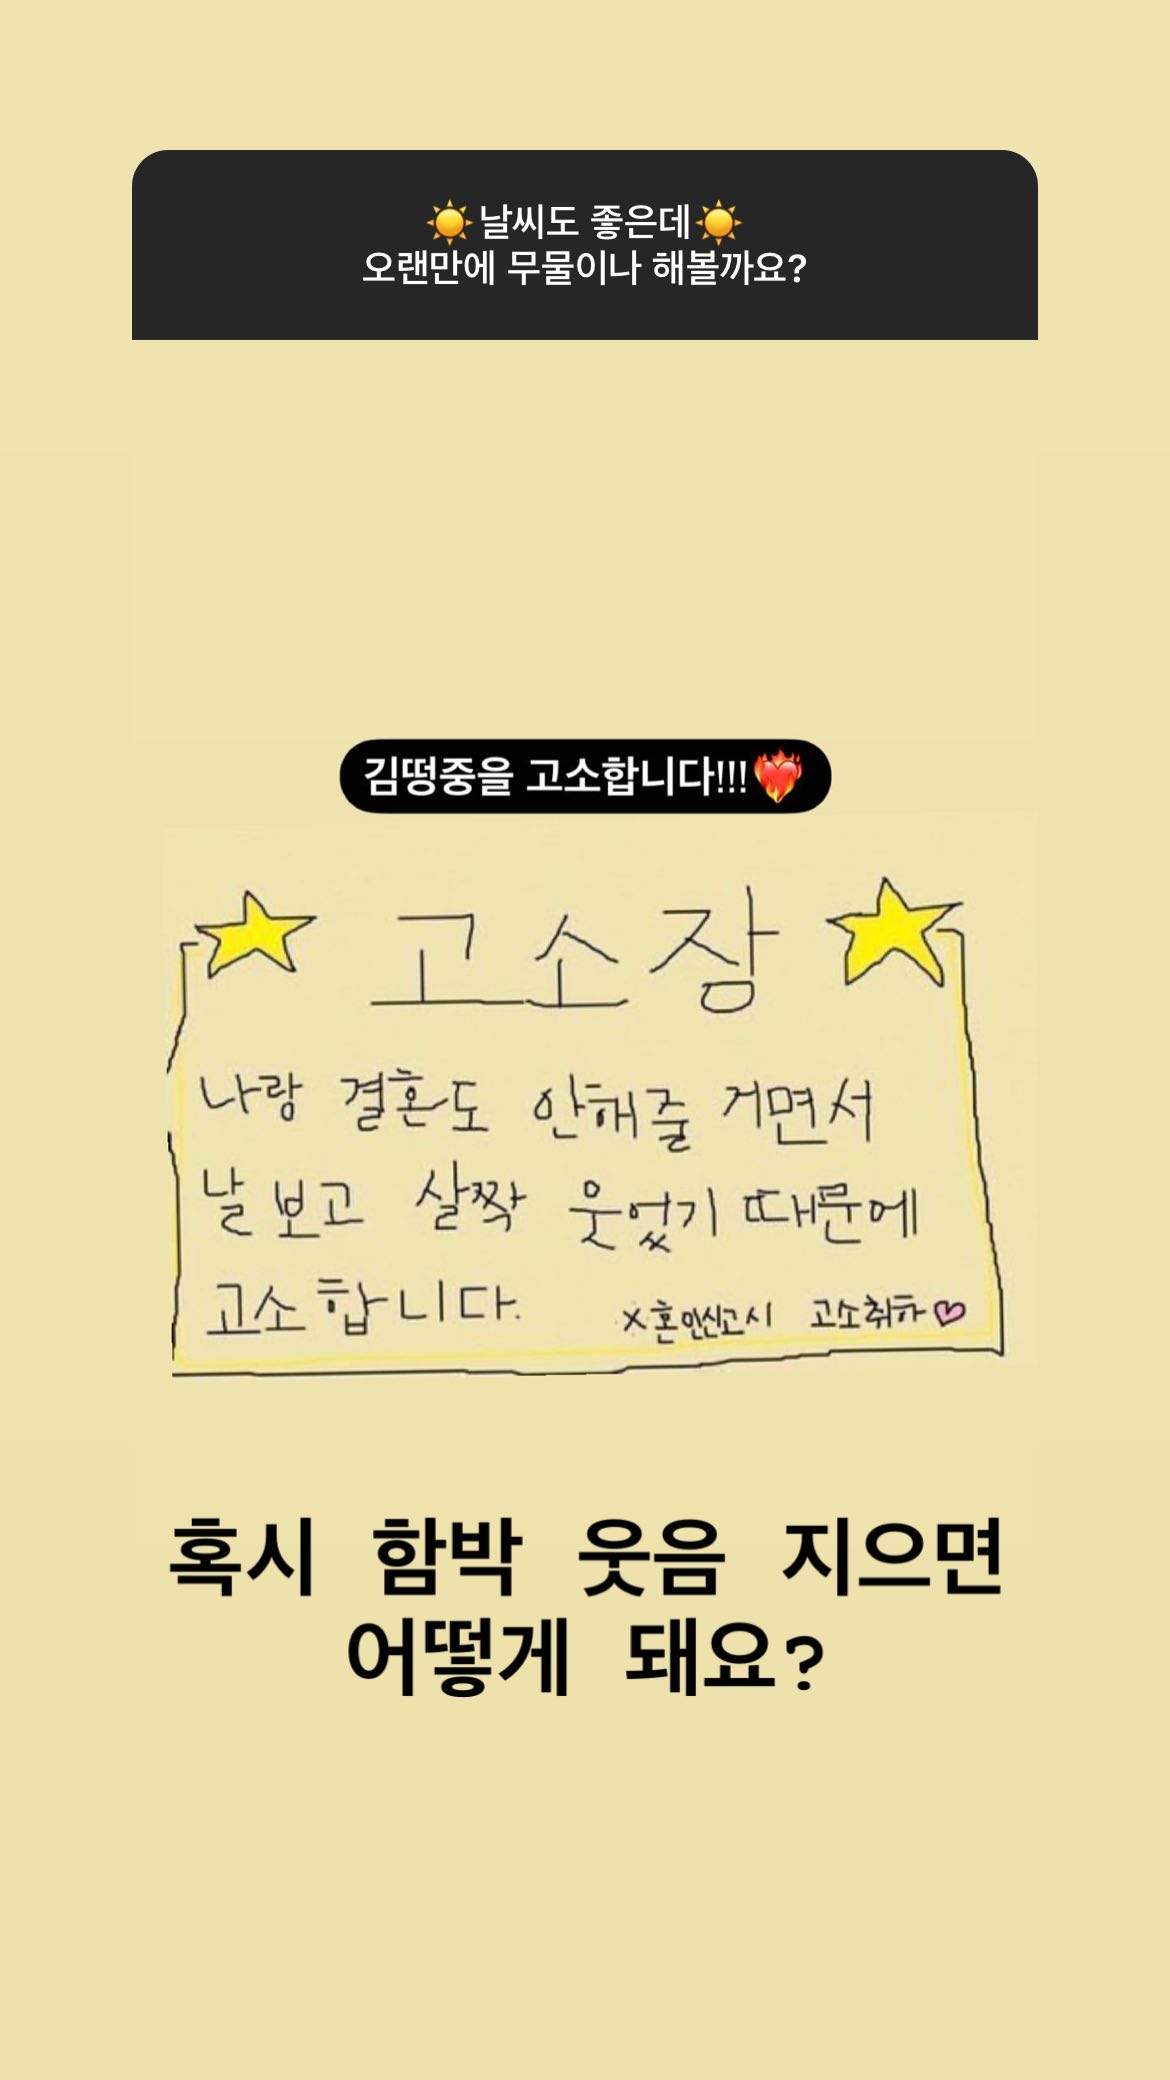 ☀️날씨도 좋은데☀️
오랜만에 무물이나 해볼까요?
김떵중을 고소합니다!!!❤️‍🔥
고소장
나랑 결혼도 안해줄 거면서
날 보고 살짝 웃었기 때문에
고소합니다.
x혼인신고시 고소취하♡
혹시 함박 웃음 지으면
어떻게 돼요?